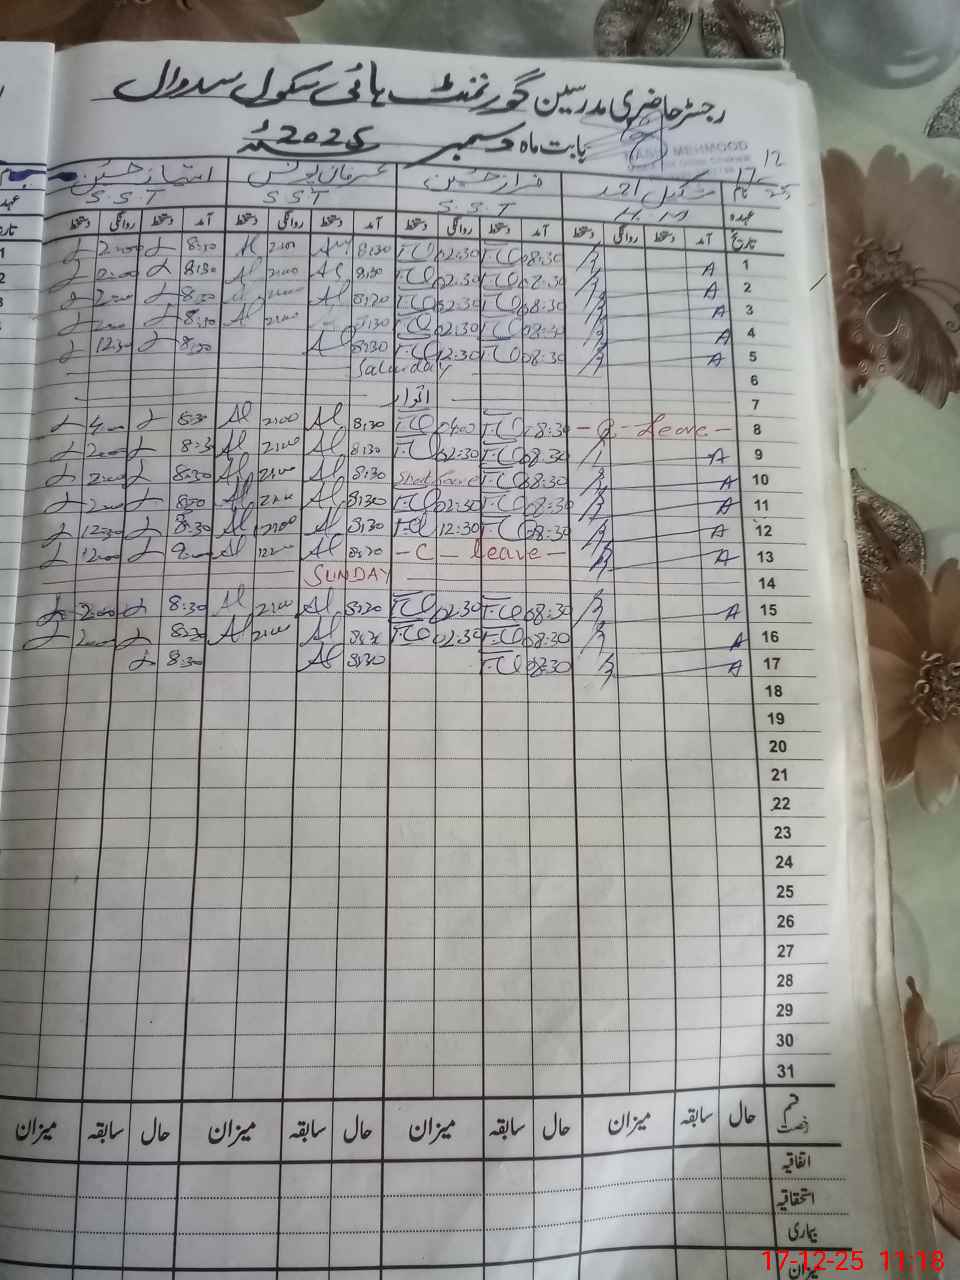 رجسٹر حاضری مدرسین گورنمنٹ ہائی سکول سدوال
بابت ماہ دسمبر 2025ء
MEHMOOD
17/12
نام شکیل احمد فراز حسین عرفان یونس امتیاز حسین
عہدہ H.M S.S.T S.S.T S.S.T
تاریخ آمد دستخط روانگی دستخط آمد دستخط روانگی دستخط آمد دستخط روانگی دستخط آمد دستخط روانگی دستخط
1 A 08:30 02:30 8:30 2:00 8:30 2:00
2 A 08:30 02:30 8:30 2:00 8:30 2:00
3 A 08:30 02:30 8:30 2:00 8:30 2:00
4 A 08:30 02:30 8:30 2:00 8:30 2:00
5 A 08:30 12:30 8:30 8:30 12:30
6 Saturday
7 اتوار
8 Leave 08:30 04:02 8:30 2:00 8:30 4:00
9 A 08:30 02:30 8:30 2:00 8:30 2:00
10 A 08:30 Short Leave 8:30 2:00 8:30 2:00
11 A 08:30 02:30 8:30 2:00 8:30 2:00
12 A 08:30 12:30 8:30 2:00 8:30 12:30
13 A - C - Leave - 8:30 12:00 9:00 12:00
14 SUNDAY
15 A 08:30 02:30 8:30 2:00 8:30 2:00
16 A 08:30 02:30 8:30 2:00 8:30 2:00
17 A 08:30 8:30 8:30
18
19
20
21
22
23
24
25
26
27
28
29
30
31
قسم رخصت حال سابقہ میزان حال سابقہ میزان حال سابقہ میزان حال سابقہ میزان
اتفاقیہ
استحقاقیہ
بیماری
میزان
17-12-25 11:18